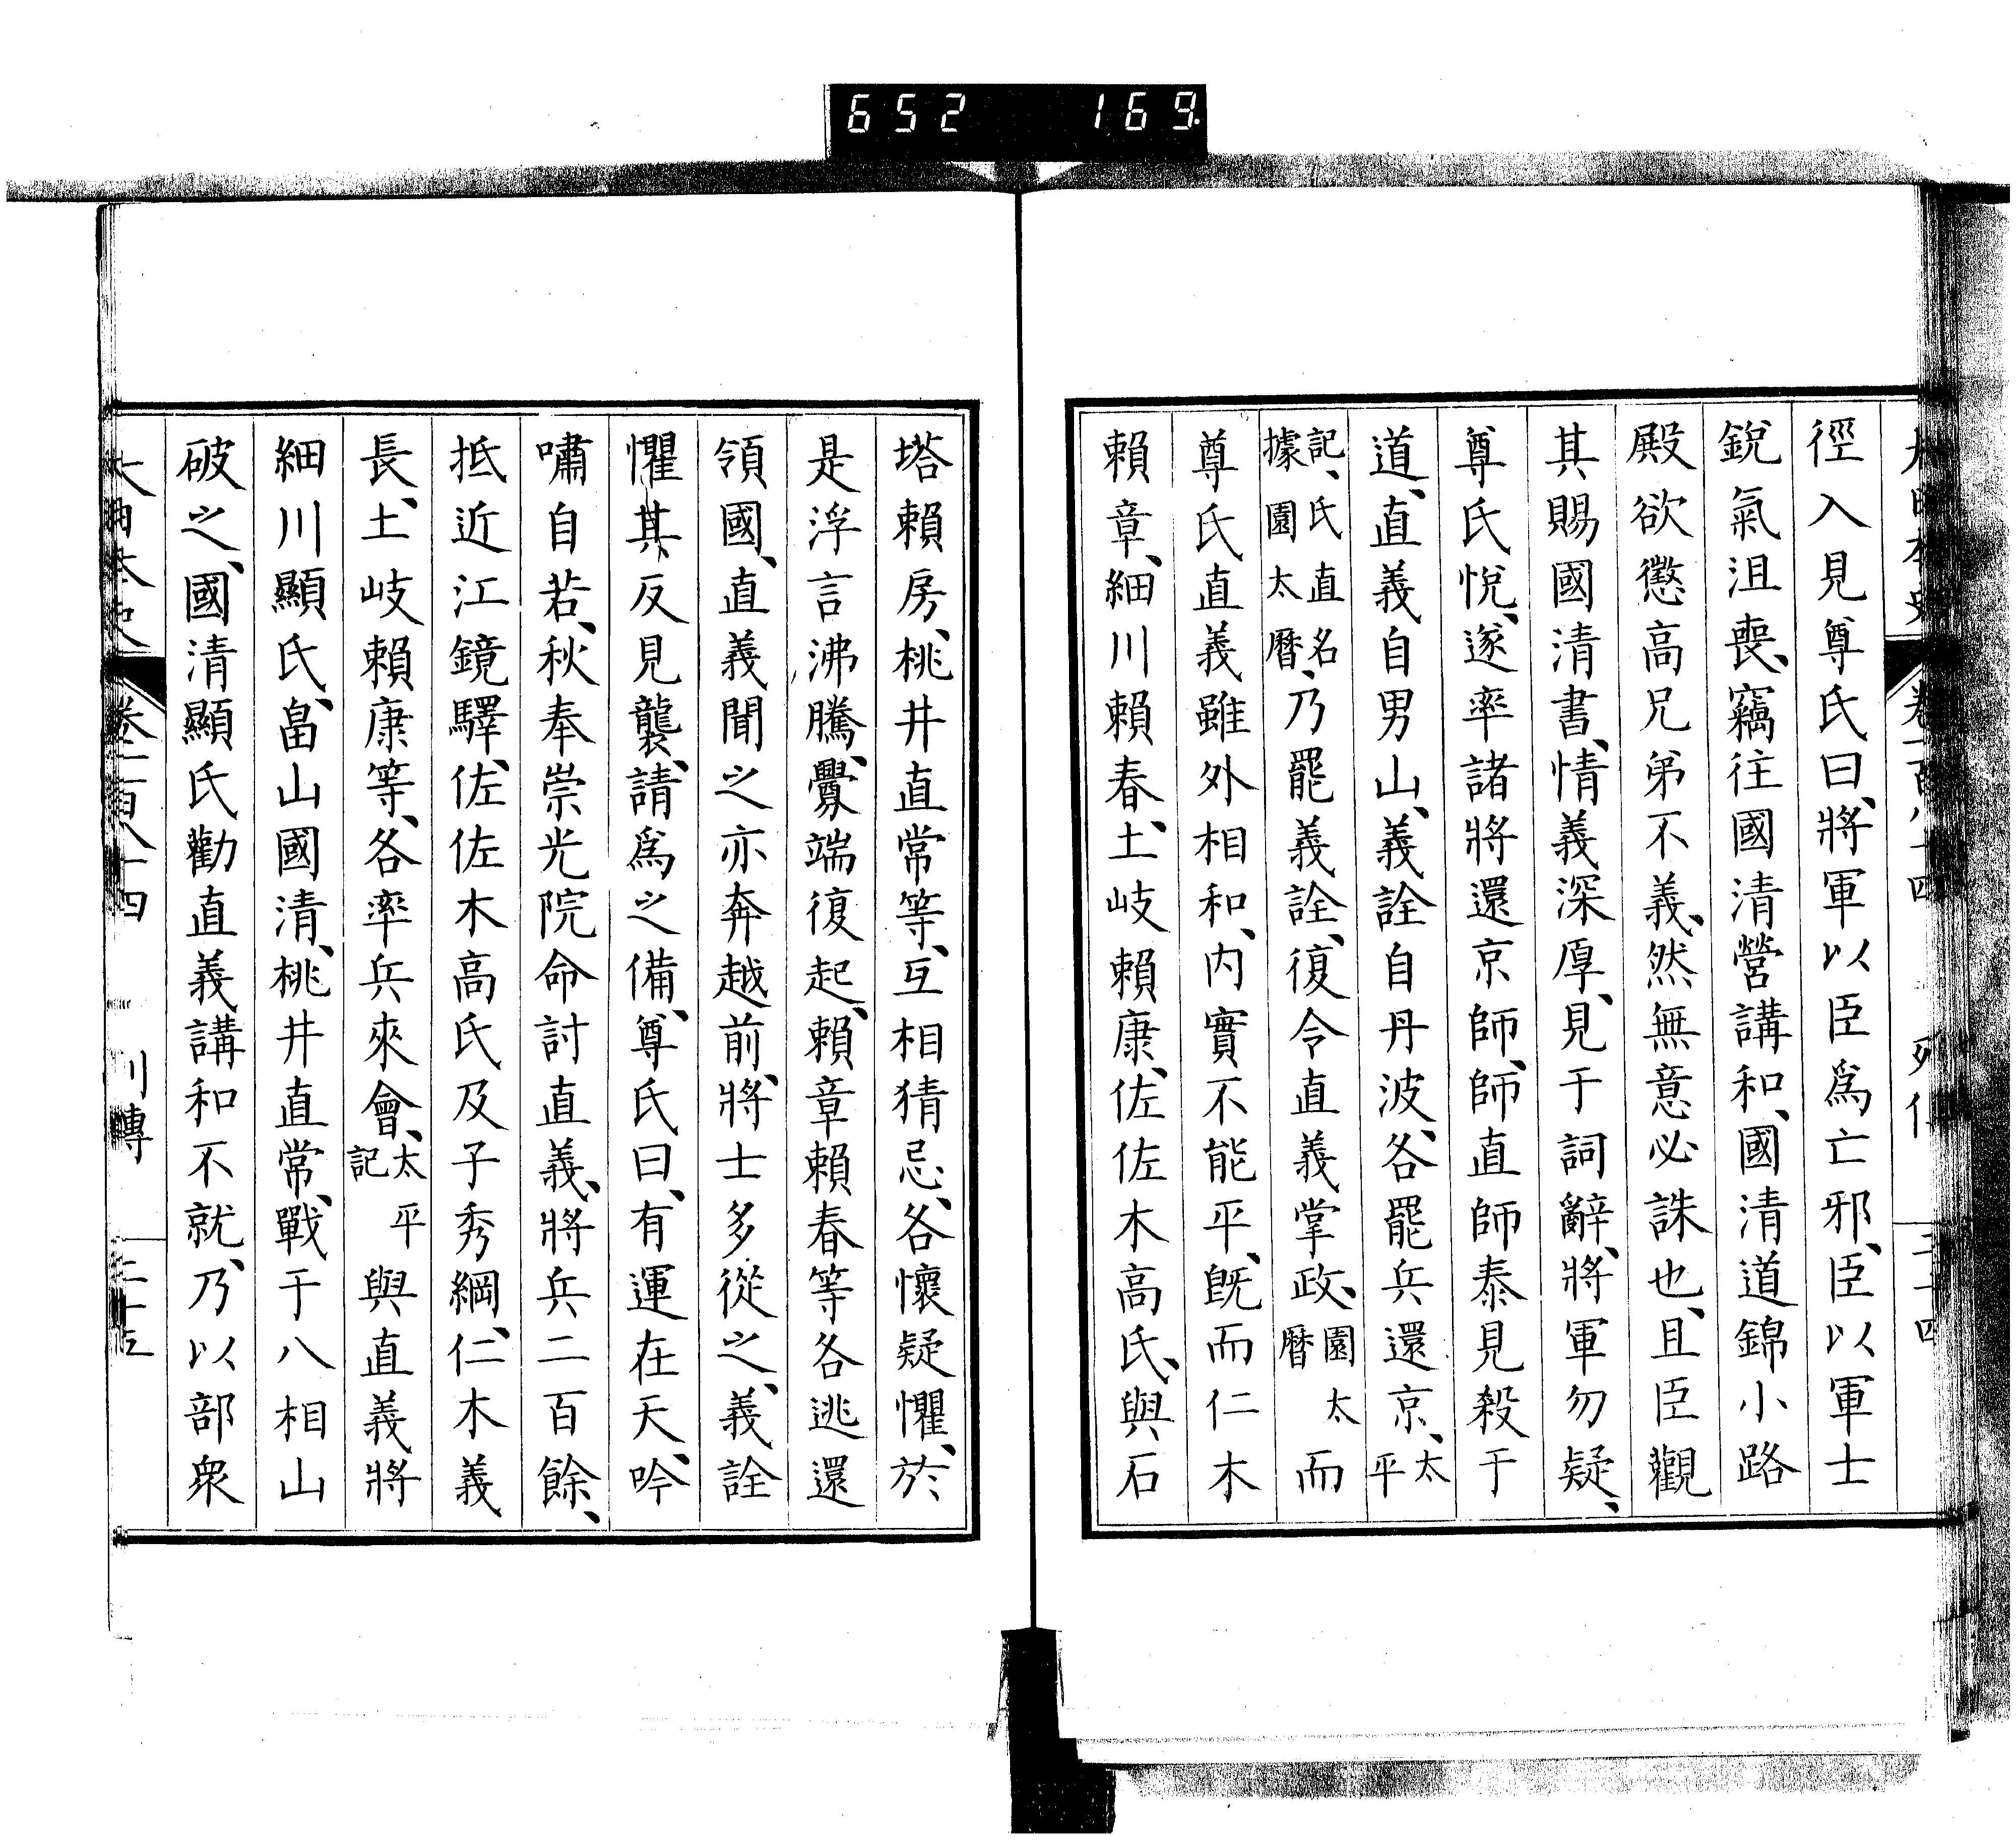 652 169
大日本史 卷一百八十四 列傳 三十四
徑入見尊氏曰、將軍以臣爲亡邪、臣以軍士
銳氣沮喪、竊往國清營講和、國清道錦小路
殿欲懲高兄弟不義、然無意必誅也、且臣觀
其賜國清書、情義深厚、見于詞辭、將軍勿疑、
尊氏悅、遂率諸將還京師、師直師泰見殺于
道、直義自男山、義詮自丹波、各罷兵還京、太平
記、氏直名據園太曆、乃罷義詮、復令直義掌政、園太曆而
尊氏直義雖外相和、內實不能平、既而仁木
賴章、細川賴春、土岐賴康、佐佐木高氏、與石
塔賴房、桃井直常等、互相猜忌、各懷疑懼、於
是浮言沸騰、釁端復起、賴章賴春等各逃還
領國、直義聞之亦奔越前、將士多從之、義詮
懼其反見襲、請爲之備、尊氏曰、有運在天、吟
嘯自若、秋奉崇光院命討直義、將兵二百餘、
抵近江鏡驛、佐佐木高氏及子秀綱、仁木義
長、土岐賴康等、各率兵來會、太平記與直義將
細川顯氏、畠山國清、桃井直常、戰于八相山
破之、國清顯氏勸直義講和不就、乃以部衆
大日本史 卷一百八十四 列傳 三十五